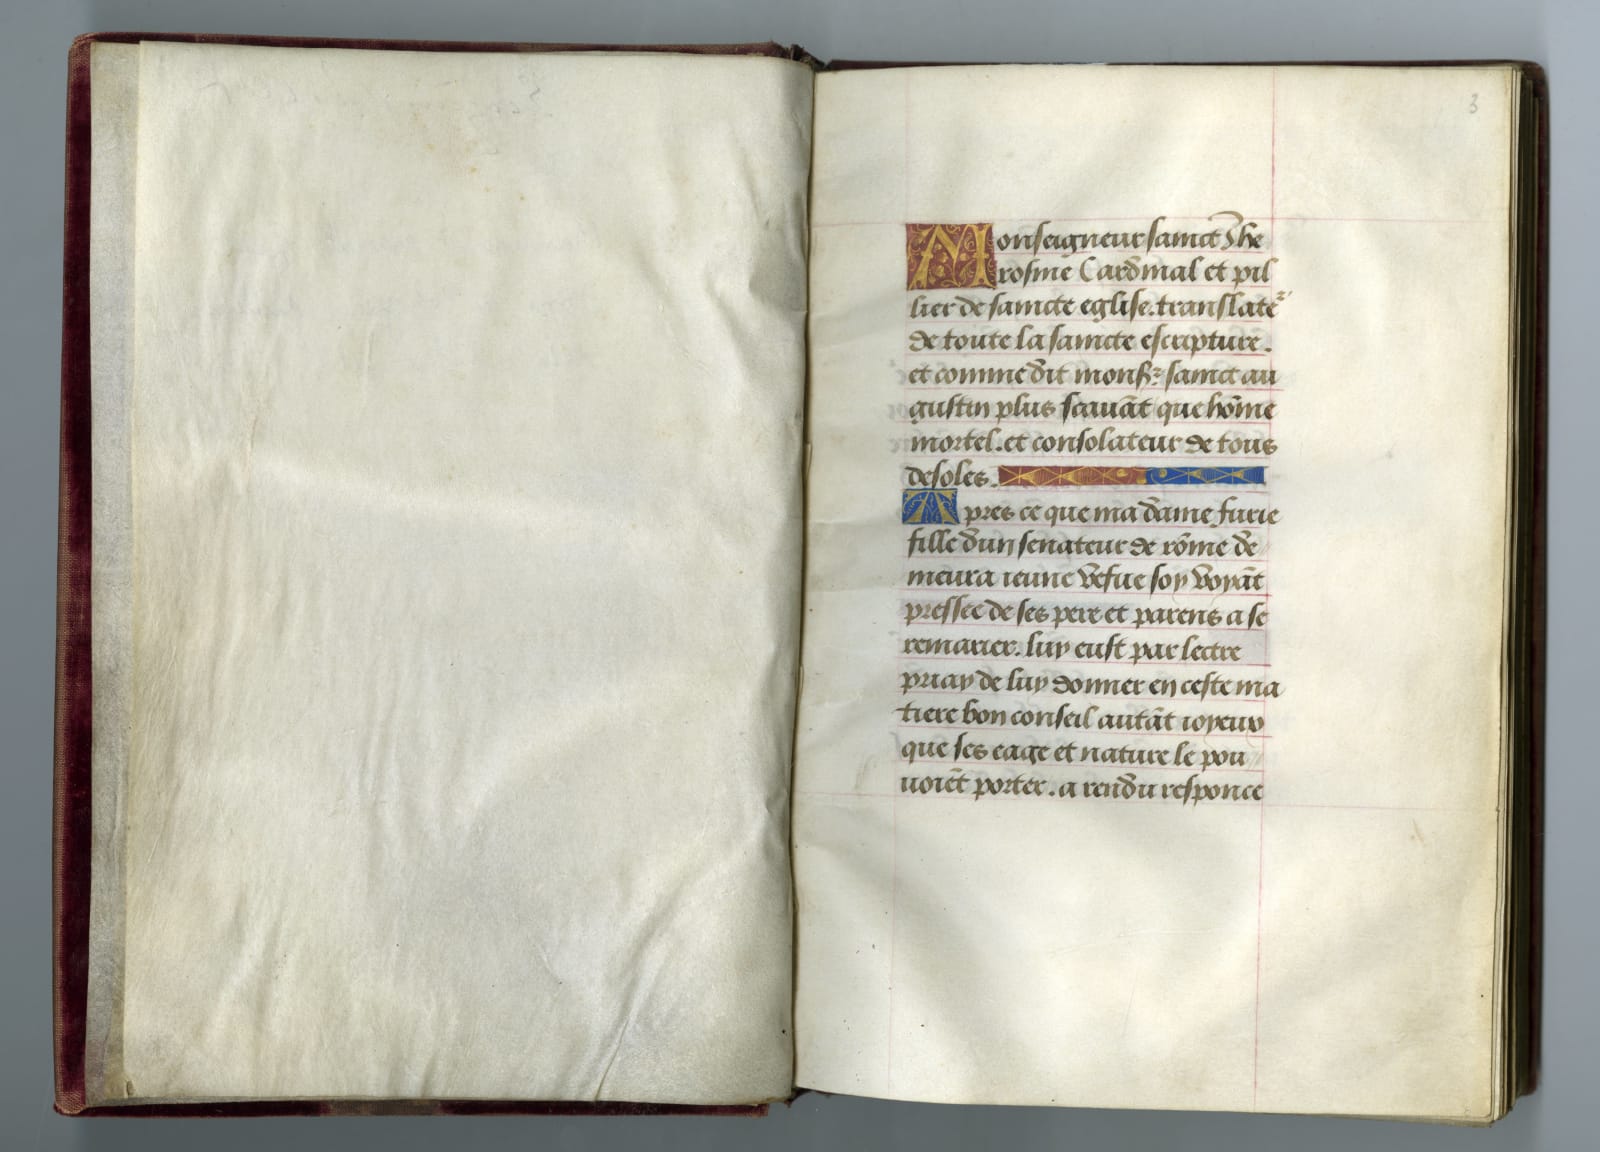 3
Monseigneur sainct Ihe
rosme Cardinal et pil
lier de saincte eglise. translateᷣ
de toute la saincte escripture.
et comme dit monsr̃ sainct au
gustin plus scauãt que hõme
mortel. et consolateur de tous
desoles.
Apres ce que ma dame furie
fille dun senateur de rõme de
meura ieune vefue soy voyãt
pressee de ses pere et parens a se
remarier. luy eust par lectre
priay de luy donner en ceste ma
tiere bon conseil autãt ioyeux
que ses eage et nature le pou
uoiẽt porter. a rendu responce